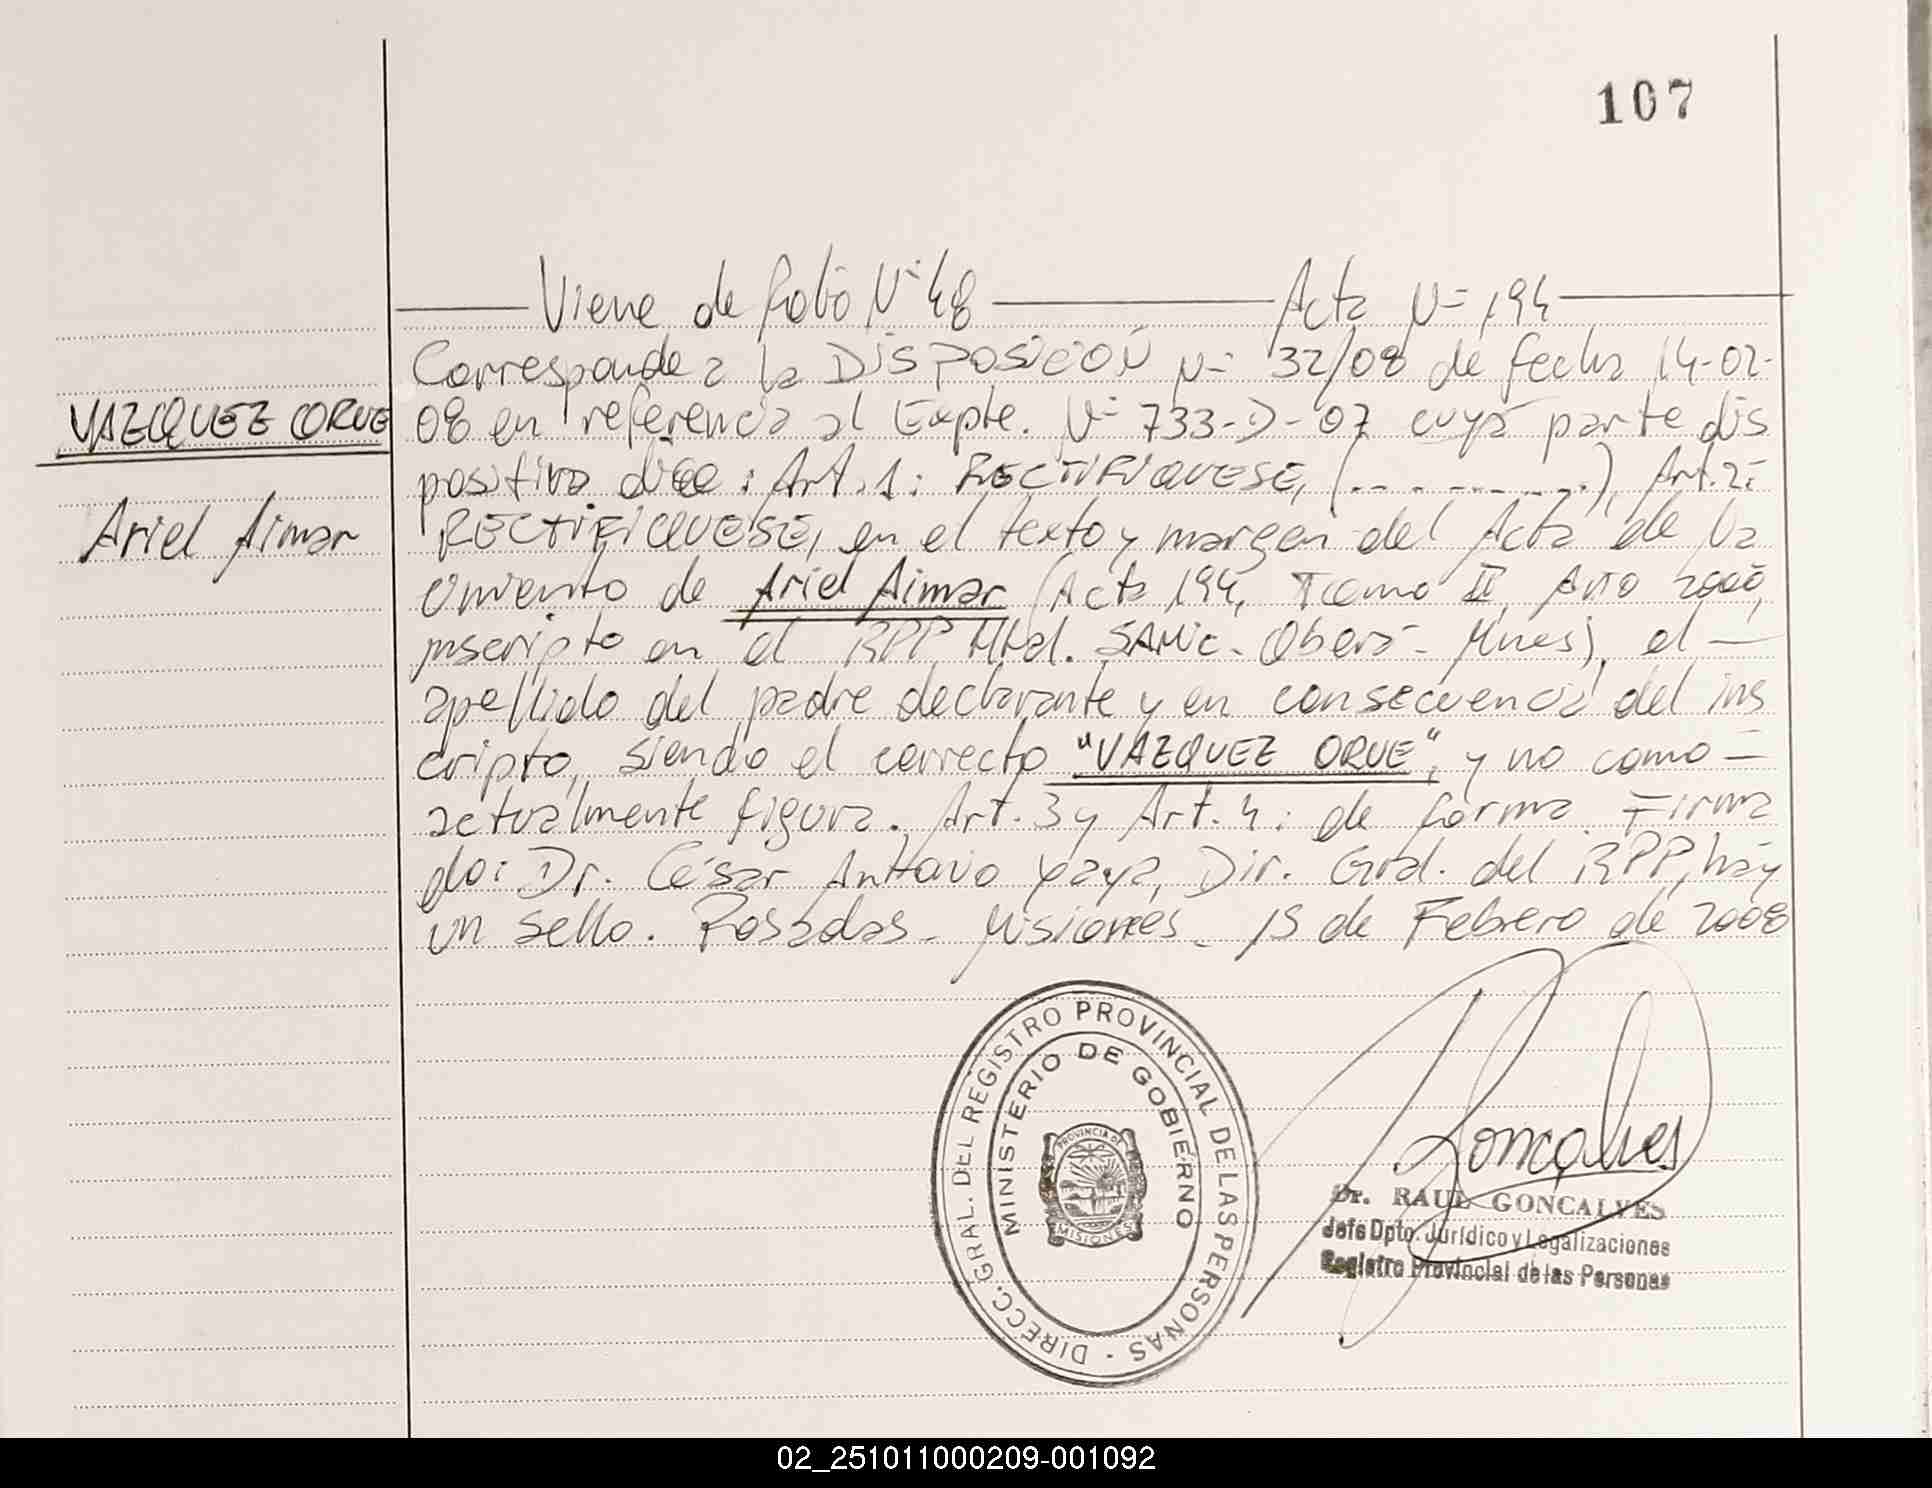 107
Viene de folio Nº 48 Acta Nº 194
Corresponde a la DISPOSICIÓN Nº 32/08 de fecha 14-02-
VAZQUEZ ORUE
08 en referencia al Expte. Nº 733-D-07 cuya parte dis
positiva dice: Art. 1: RECTIFIQUESE, (...........), Art. 2:
Ariel Aimar
RECTIFIQUESE, en el texto y margen del Acta de Na
cimiento de Ariel Aimar (Acta 194, Tomo II, Año 2000,
inscripto en el RPP Htal. SAMIC - Oberá - Mnes), el
apellido del padre declarante y en consecuencia del ins
cripto, siendo el correcto "VAZQUEZ ORUE", y no como
actualmente figura. Art. 3 y Art. 4: de forma. Firma
do: Dr. César Antonio Yaya, Dir. Gral. del RPP, hay
un sello. Posadas - Misiones - 15 de Febrero de 2008
DIRECC. GRAL. DEL REGISTRO PROVINCIAL DE LAS PERSONAS -
MINISTERIO DE GOBIERNO
PROVINCIA DE
MISIONES
Gonçalves
Dr. RAUL GONCALVES
Jefe Dpto. Jurídico y Legalizaciones
Registro Provincial de las Personas
02_251011000209-001092